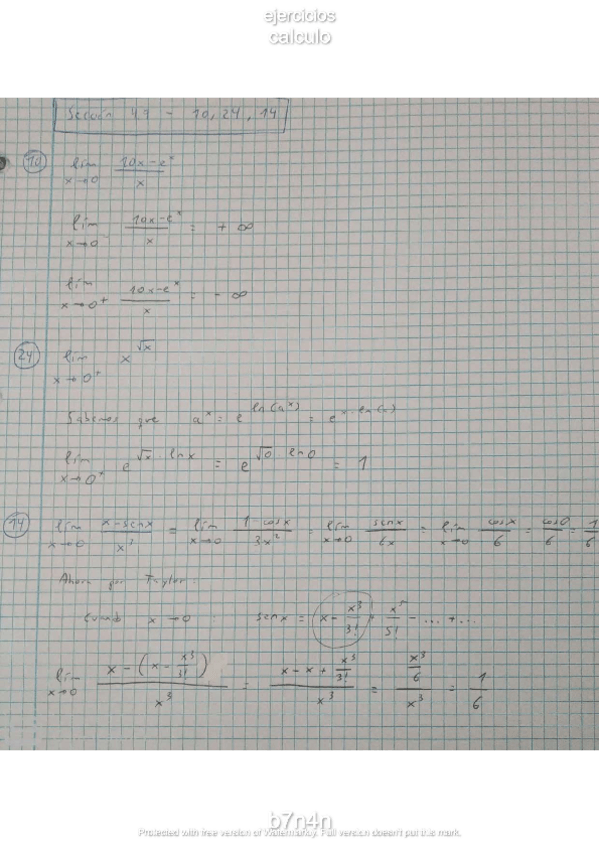 ejercicios
calculo
Sección 47 - 10, 24, 14
10 lim x→0 (10x-e^x)/x
lim x→0⁻ (10x-e^x)/x = +∞
lim x→0⁺ (10x-e^x)/x = -∞
24 lim x→0⁺ x^√x
Sabemos que a^x = e^ln(a^x) = e^x·ln(a)
lim x→0⁺ e^√x·lnx = e^√0·ln0 = 1
14 lim x→0 (x-senx)/x³ = lim x→0 (1-cosx)/3x² = lim x→0 senx/6x = lim x→0 cosx/6 = cos0/6 = 1/6
Ahora por Taylor:
Cuando x→0 : senx = x - x³/3! + x⁵/5! - ... + ...
lim x→0 (x-(x-x³/3!))/x³ = (x-x+x³/3!)/x³ = (x³/6)/x³ = 1/6
b7n4n
Protected with free version of Watermarkly. Full version doesn't put this mark.